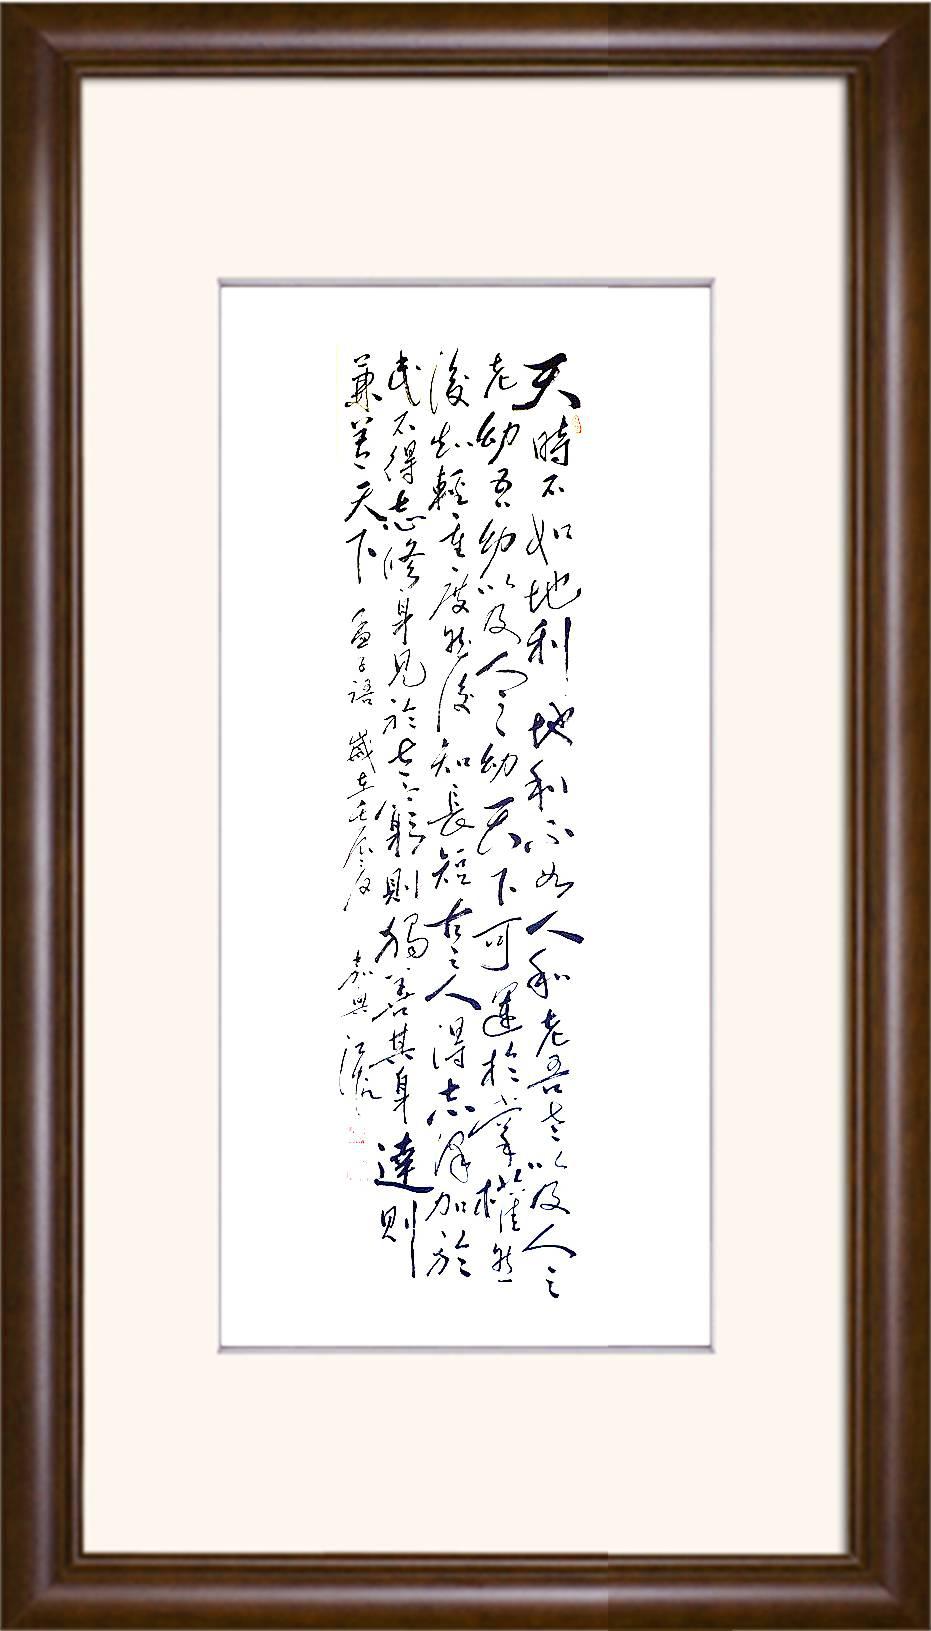 天時不如地利地利不如人和老吾老以及人之
老幼吾幼以及人之幼天下可運於掌權然
後知輕重度然後知長短古之人得志澤加於
民不得志修身見於世窮則獨善其身達則
兼善天下 孟子語 歲在壬辰夏 嘉興 江